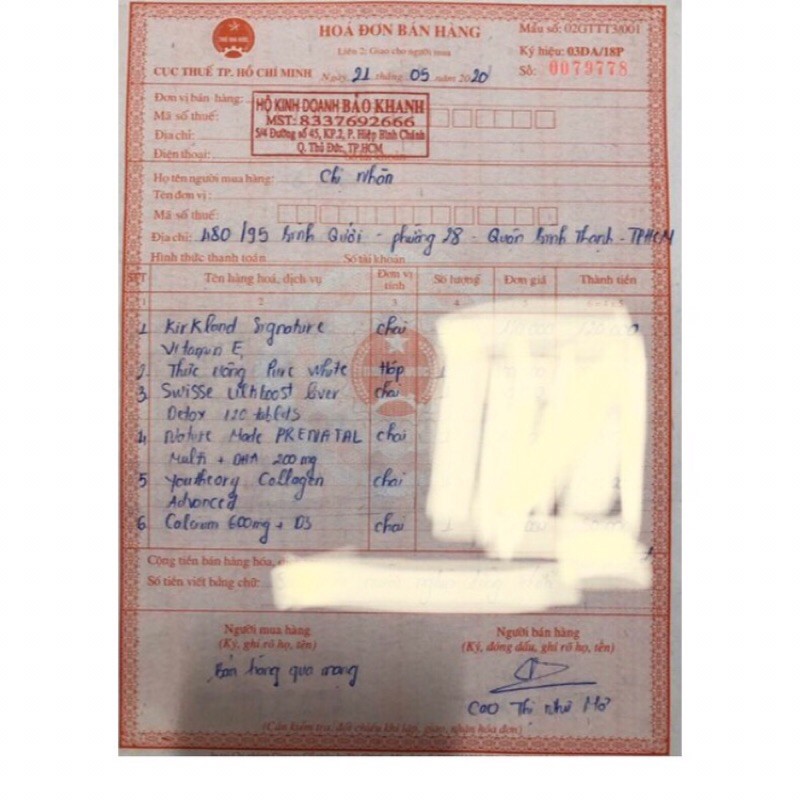 HOÁ ĐƠN BÁN HÀNG
Mẫu số: 02GTTT3/001
Liên 2: Giao cho người mua
Ký hiệu: 03DA/18P
CỤC THUẾ TP. HỒ CHÍ MINH
Ngày 21 tháng 05 năm 2020
Số: 0079778
Đơn vị bán hàng:
HỘ KINH DOANH BẢO KHANH
Mã số thuế:
MST: 8337692666
Địa chỉ:
5/4 Đường số 45, KP.2, P. Hiệp Bình Chánh
Q. Thủ Đức, TP.HCM
Điện thoại:
Họ tên người mua hàng: Chị Nhân
Tên đơn vị:
Mã số thuế:
Địa chỉ: 480/95 Bình Quới - phường 28 - Quận Bình Thạnh - TPHCM
Hình thức thanh toán Số tài khoản
STT Tên hàng hoá, dịch vụ Đơn vị tính Số lượng Đơn giá Thành tiền
1 2 3 4
1 Kirkland Signature chai
Vitamin E
2 Thức uống Pure White Hộp
3 Swisse Ultiboost liver chai
Detox 120 tablets
4 Nature Made PRENATAL chai
Multi + DHA 200mg
5 Youtheory Collagen chai
Advanced
6 Calcium 600mg + D3 chai
Cộng tiền bán hàng hóa,
Số tiền viết bằng chữ:
Người mua hàng
(Ký, ghi rõ họ, tên)
Người bán hàng
(Ký, đóng dấu, ghi rõ họ, tên)
Bán hàng qua mạng
Cao Thị Như Mơ
(Cần kiểm tra, đối chiếu khi lập, giao, nhận hóa đơn)